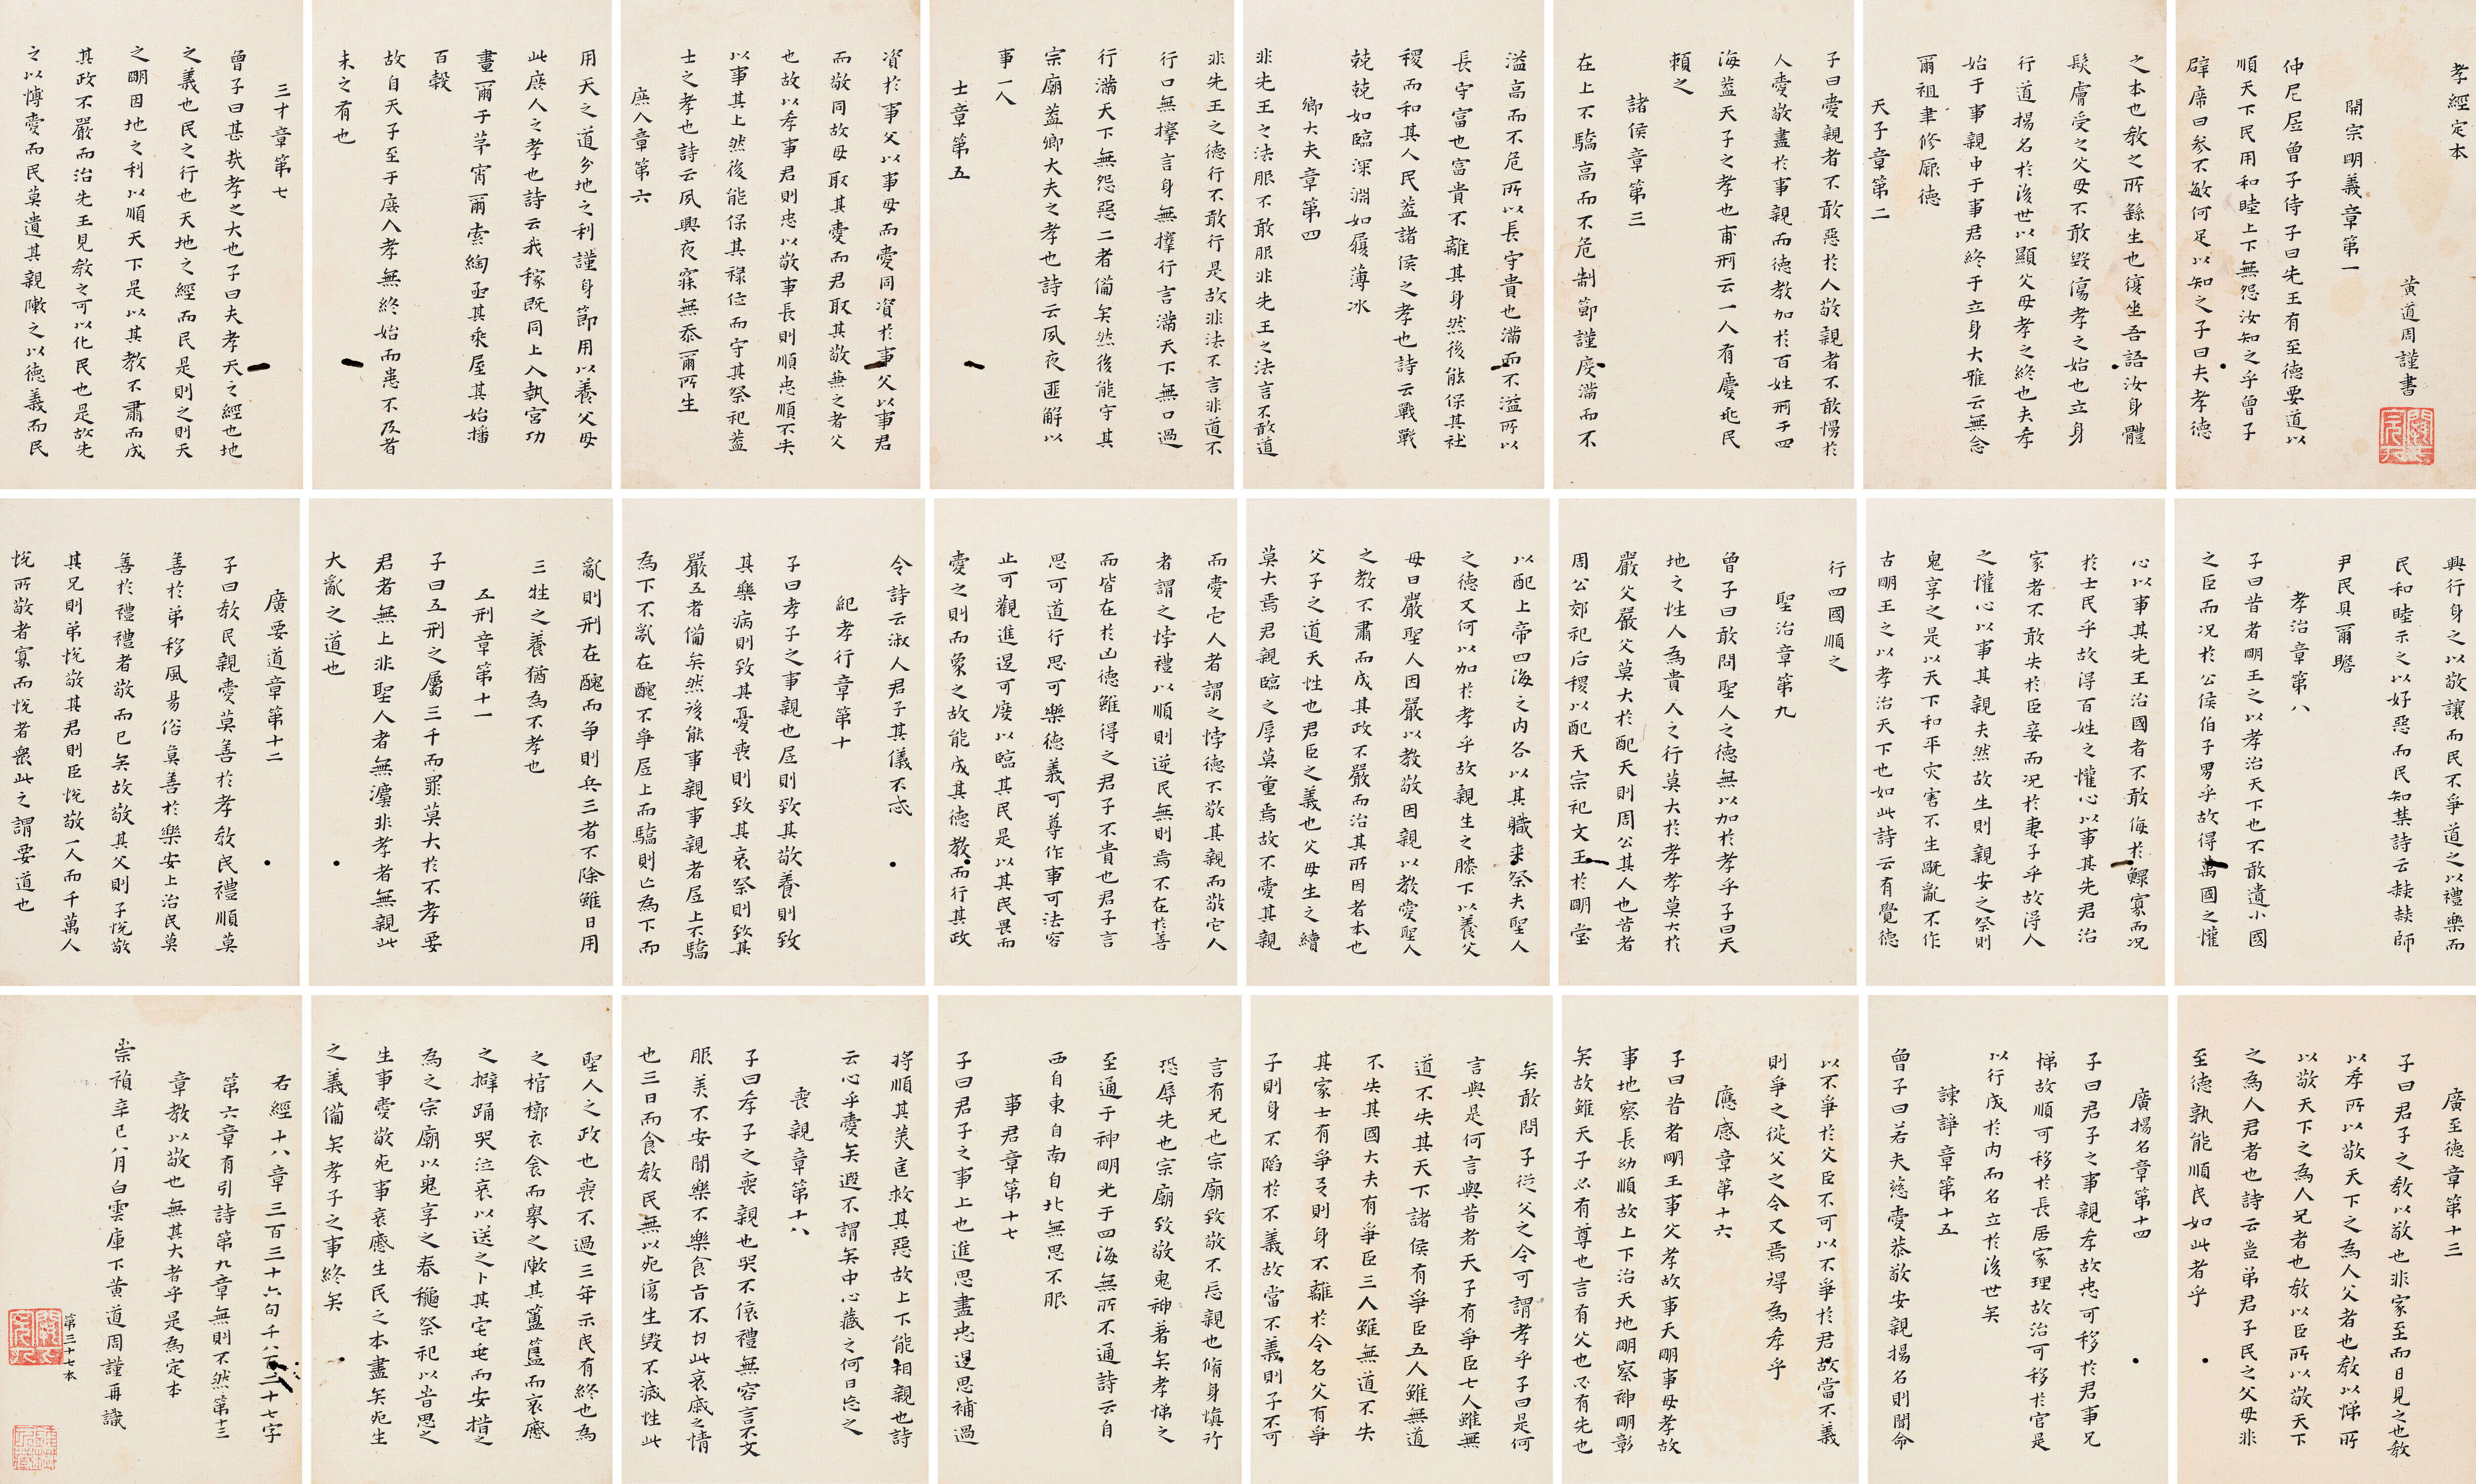 孝經定本
黃道周謹書
開宗明義章第一
仲尼凥曾子侍子曰先王有至德要道以
順天下民用和睦上下無怨汝知之乎曾子
辟席曰參不敏何足以知之子曰夫孝德
之本也教之所繇生也復坐吾語汝身體
髮膚受之父母不敢毀傷孝之始也立身
行道揚名於後世以顯父母孝之終也夫孝
始于事親中于事君終于立身大雅云無念
爾祖聿修厥德
天子章第二
子曰愛親者不敢惡於人敬親者不敢慢於
人愛敬盡於事親而德教加於百姓刑于四
海葢天子之孝也甫刑云一人有慶兆民
賴之
諸侯章第三
在上不驕高而不危制節謹度滿而不
溢高而不危所以長守貴也滿而不溢所以
長守富也富貴不離其身然後能保其社
稷而和其人民葢諸侯之孝也詩云戰戰
兢兢如臨深淵如履薄冰
卿大夫章第四
非先王之法服不敢服非先王之法言不敢道
非先王之德行不敢行是故非法不言非道不
行口無擇言身無擇行言滿天下無口過
行滿天下無怨惡二者備矣然後能守其
宗廟葢卿大夫之孝也詩云夙夜匪解以
事一人
士章第五
資於事父以事母而愛同資於事父以事君
而敬同故母取其愛而君取其敬兼之者父
也故以孝事君則忠以敬事長則順忠順不失
以事其上然後能保其祿位而守其祭祀葢
士之孝也詩云夙興夜寐無忝爾所生
庶人章第六
用天之道分地之利謹身節用以養父母
此庶人之孝也詩云我稼既同上入執宮功
晝爾于茅宵爾索綯亟其乘屋其始播
百穀
故自天子至于庶人孝無終始而患不及者
未之有也
三才章第七
曾子曰甚哉孝之大也子曰夫孝天之經也地
之義也民之行也天地之經而民是則之則天
之明因地之利以順天下是以其教不肅而成
其政不嚴而治先王見教之可以化民也是故先
之以博愛而民莫遺其親陳之以德義而民
興行身之以敬讓而民不爭道之以禮樂而
民和睦示之以好惡而民知禁詩云赫赫師
尹民具爾瞻
孝治章第八
子曰昔者明王之以孝治天下也不敢遺小國
之臣而況於公侯伯子男乎故得萬國之懽
心以事其先王治國者不敢侮於鰥寡而況
於士民乎故得百姓之懽心以事其先君治
家者不敢失於臣妾而況於妻子乎故得人
之懽心以事其親夫然故生則親安之祭則
鬼享之是以天下和平灾害不生禍亂不作
古明王之以孝治天下也如此詩云有覺德
行四國順之
聖治章第九
曾子曰敢問聖人之德無以加於孝乎子曰天
地之性人為貴人之行莫大於孝孝莫大於
嚴父嚴父莫大於配天則周公其人也昔者
周公郊祀后稷以配天宗祀文王於明堂
以配上帝四海之內各以其職來祭夫聖人
之德又何以加於孝乎故親生之膝下以養父
母日嚴聖人因嚴以教敬因親以教愛聖人
之教不肅而成其政不嚴而治其所因者本也
父子之道天性也君臣之義也父母生之續
莫大焉君親臨之厚莫重焉故不愛其親
而愛它人者謂之悖德不敬其親而敬它人
者謂之悖禮以順則逆民無則焉不在於善
而皆在於凶德雖得之君子不貴也君子言
思可道行思可樂德義可尊作事可法容
止可觀進退可度以臨其民是以其民畏而
愛之則而象之故能成其德教而行其政
令詩云淑人君子其儀不忒
紀孝行章第十
子曰孝子之事親也凥則致其敬養則致
其樂病則致其憂喪則致其哀祭則致其
嚴五者備矣然後能事親事親者凥上不驕
為下不亂在醜不爭凥上而驕則亡為下而
亂則刑在醜而爭則兵三者不除雖日用
三牲之養猶為不孝也
五刑章第十一
子曰五刑之屬三千而罪莫大於不孝要
君者無上非聖人者無灋非孝者無親此
大亂之道也
廣要道章第十二
子曰教民親愛莫善於孝教民禮順莫
善於弟移風易俗莫善於樂安上治民莫
善於禮禮者敬而已矣故敬其父則子悅敬
其兄則弟悅敬其君則臣悅敬一人而千萬人
悅所敬者寡而悅者衆此之謂要道也
廣至德章第十三
子曰君子之教以敬也非家至而日見之也教
以孝所以敬天下之為人父者也教以悌所
以敬天下之為人兄者也教以臣所以敬天下
之為人君者也詩云豈弟君子民之父母非
至德孰能順民如此者乎
廣揚名章第十四
子曰君子之事親孝故忠可移於君事兄
悌故順可移於長居家理故治可移於官是
以行成於內而名立於後世矣
諫諍章第十五
曾子曰若夫慈愛恭敬安親揚名則聞命
矣敢問子從父之令可謂孝乎子曰是何
言與是何言與昔者天子有爭臣七人雖無
道不失其天下諸侯有爭臣五人雖無道
不失其國大夫有爭臣三人雖無道不失
其家士有爭友則身不離於令名父有爭
子則身不陷於不義故當不義則子不可
以不爭於父臣不可以不爭於君故當不義
則爭之從父之令又焉得為孝乎
應感章第十六
子曰昔者明王事父孝故事天明事母孝故
事地察長幼順故上下治天地明察神明彰
矣故雖天子必有尊也言有父也必有先也
言有兄也宗廟致敬不忘親也脩身慎行
恐辱先也宗廟致敬鬼神著矣孝悌之
至通于神明光于四海無所不通詩云自
西自東自南自北無思不服
事君章第十七
子曰君子之事上也進思盡忠退思補過
將順其美匡救其惡故上下能相親也詩
云心乎愛矣遐不謂矣中心藏之何日忘之
喪親章第十八
子曰孝子之喪親也哭不偯禮無容言不文
服美不安聞樂不樂食旨不甘此哀戚之情
也三日而食教民無以死傷生毀不滅性此
聖人之政也喪不過三年示民有終也為
之棺槨衣衾而舉之陳其簠簋而哀慼
之擗踊哭泣哀以送之卜其宅兆而安措之
為之宗廟以鬼享之春穐祭祀以旹思之
生事愛敬死事哀慼生民之本盡矣死生
之義備矣孝子之事終矣
右經十八章三百三十六句千八百二十七字
第六章有引詩第九章無則不然第十三
章教以敬也無其大者乎是為定本
崇禎辛巳八月白雲庫下黃道周謹再識
第三十七本